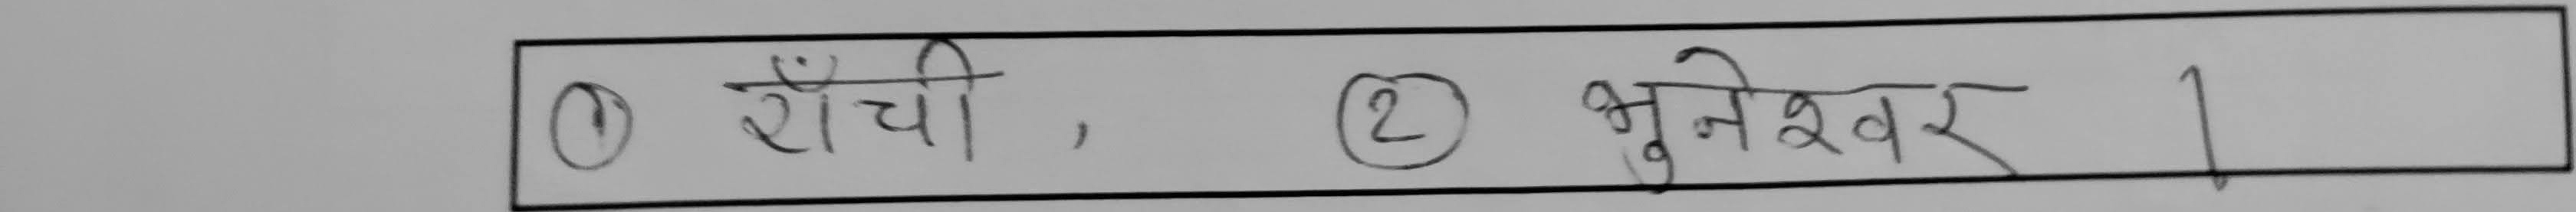 ① राँची, ② भुनेश्वर ।